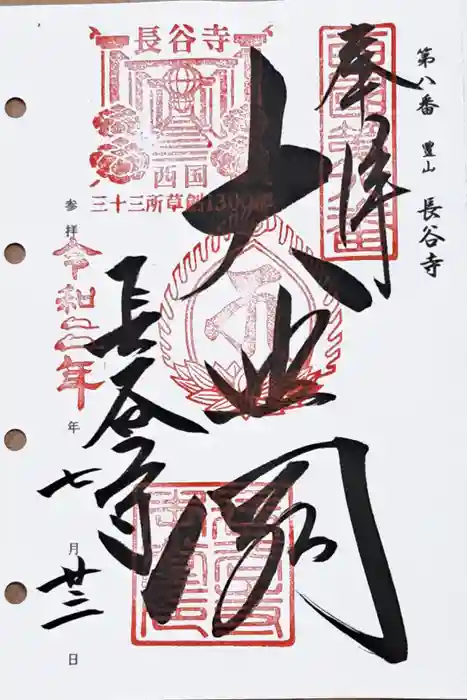 第八番 豊山 長谷寺
奉拝
西国第八番
大悲閣
長谷寺
西国
三十三所草創1300年
長谷寺
参拝 令和二年 年 七 月 廿三 日